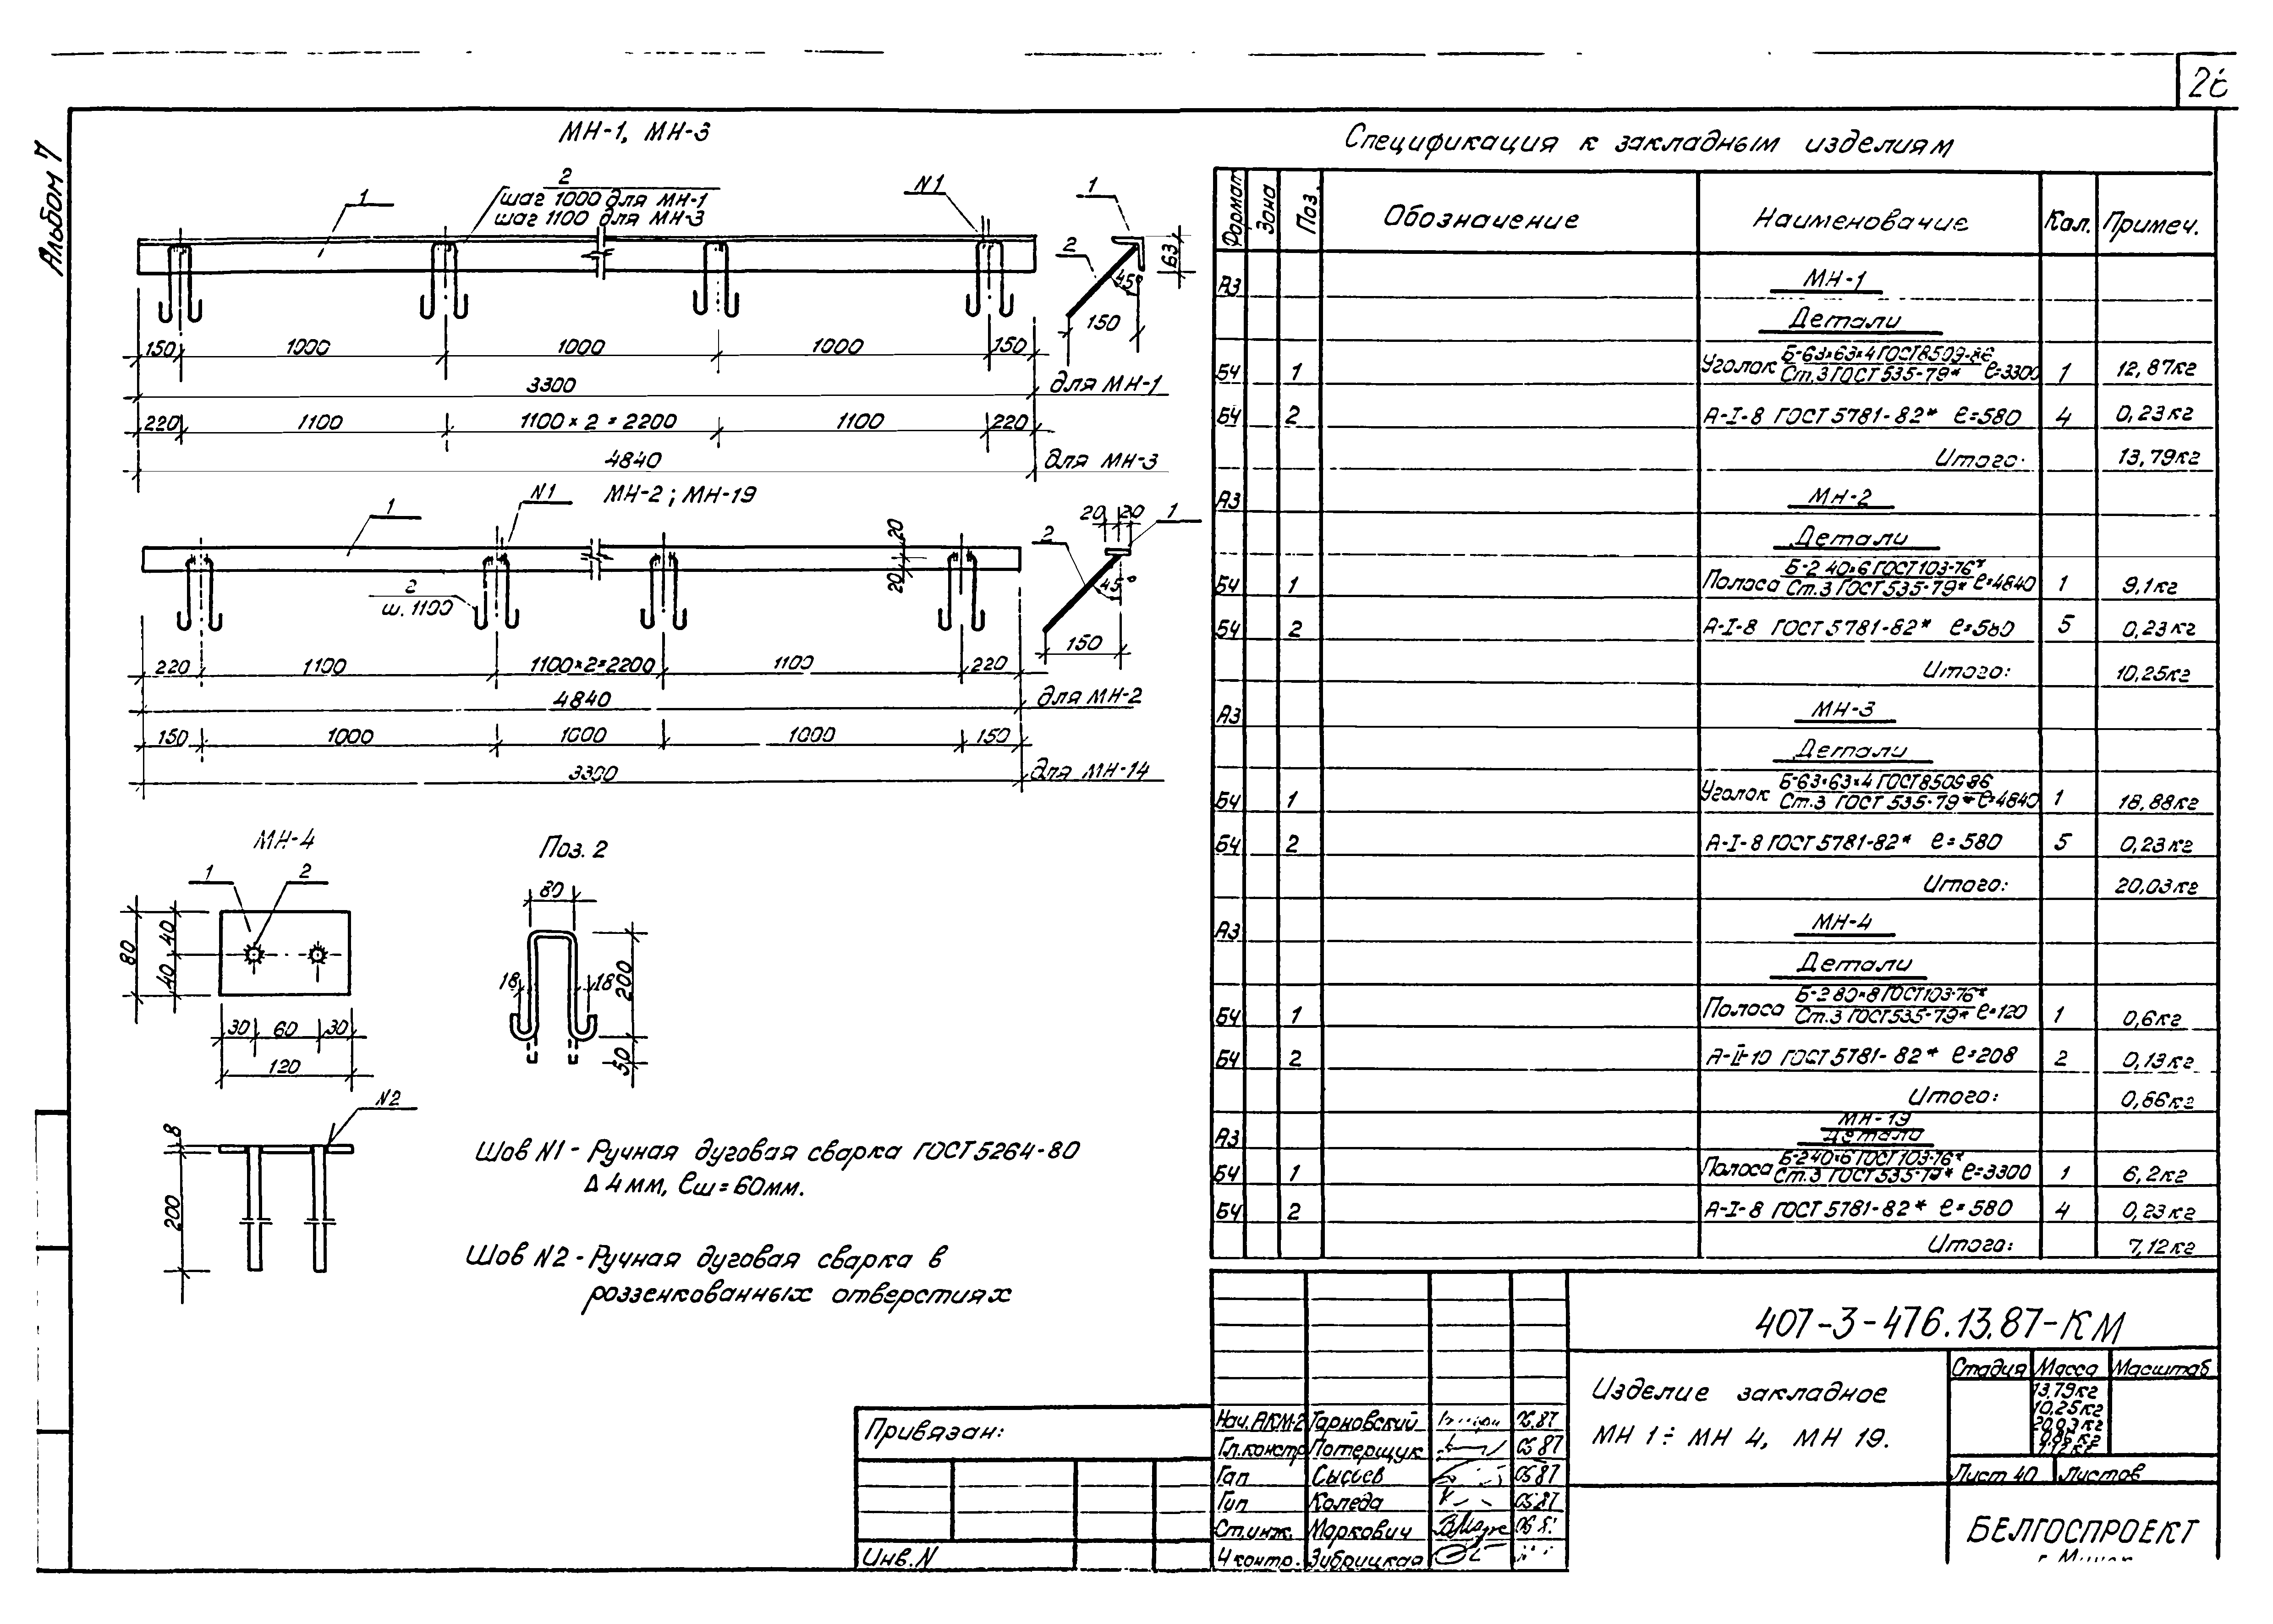 Альбом 7
МН-1, МН-3
1
2
шаг 1000 для МН-1
шаг 1100 для МН-3
N1
1
2
63
45°
150
150 1000 1000 1000 150
3300 для МН-1
220 1100 1100 × 2 = 2200 1100 220
4840 для МН-3
N1 МН-2 ; МН-19
1
20
20
2
ш. 1100
20 20 1
2
45°
150
220 1100 1100×2=2200 1100 220
4840 для МН-2
150 1000 1000 1000 150
3300 для МН-14
МН-4
1 2
80
40
40
30 60 30
120
N2
8
200
Поз. 2
80
18 18
200
50
Шов N1 - Ручная дуговая сварка ГОСТ 5264-80
Δ 4 мм, ℓш = 60мм.
Шов N2 - Ручная дуговая сварка в
роззенкованных отверстиях
Спецификация к закладным изделиям
Формат Зона Поз. Обозначение Наименование Кол. Примеч.
А3 МН-1
Детали
Б4 1 Уголок Б-63×63×4 ГОСТ 8509-86 / Ст.3 ГОСТ 535-79* ℓ=3300 1 12,87кг
Б4 2 А-I-8 ГОСТ 5781-82* ℓ=580 4 0,23кг
Итого: 13,79кг
А3 МН-2
Детали
Б4 1 Полоса Б-2 40×6 ГОСТ 103-76* / Ст.3 ГОСТ 535-79* ℓ=4840 1 9,1кг
Б4 2 А-I-8 ГОСТ 5781-82* ℓ=580 5 0,23кг
Итого: 10,25кг
А3 МН-3
Детали
Б4 1 Уголок Б-63×63×4 ГОСТ 8509-86 / Ст.3 ГОСТ 535-79* ℓ=4840 1 18,88кг
Б4 2 А-I-8 ГОСТ 5781-82* ℓ=580 5 0,23кг
Итого: 20,03кг
А3 МН-4
Детали
Б4 1 Полоса Б-2 80×8 ГОСТ 103-76* / Ст.3 ГОСТ 535-79* ℓ=120 1 0,6кг
Б4 2 А-II-10 ГОСТ 5781-82* ℓ=208 2 0,13кг
Итого: 0,86кг
МН-19
А3 Детали
Б4 1 Полоса Б-2 40×6 ГОСТ 103-76* / Ст.3 ГОСТ 535-79* ℓ=3300 1 6,2кг
Б4 2 А-I-8 ГОСТ 5781-82* ℓ=580 4 0,23кг
Итого: 7,12кг
407-3-476.13.87-КМ
Изделие закладное
МН 1÷ МН 4, МН 19.
Стадия Масса Масштаб
13,79кг
10,25кг
20,03кг
0,86 кг
7,12кг
Лист 40 Листов
БЕЛГОСПРОЕКТ
Нач. АКМ-2 Тарновский 05.87
Гл.констр Потерщук 05.87
Гап Сысоев 05.87
Гип Коледа 05.87
Ст.инж. Маркович
Н контр. Зубрицкая
Привязан:
Инв. N